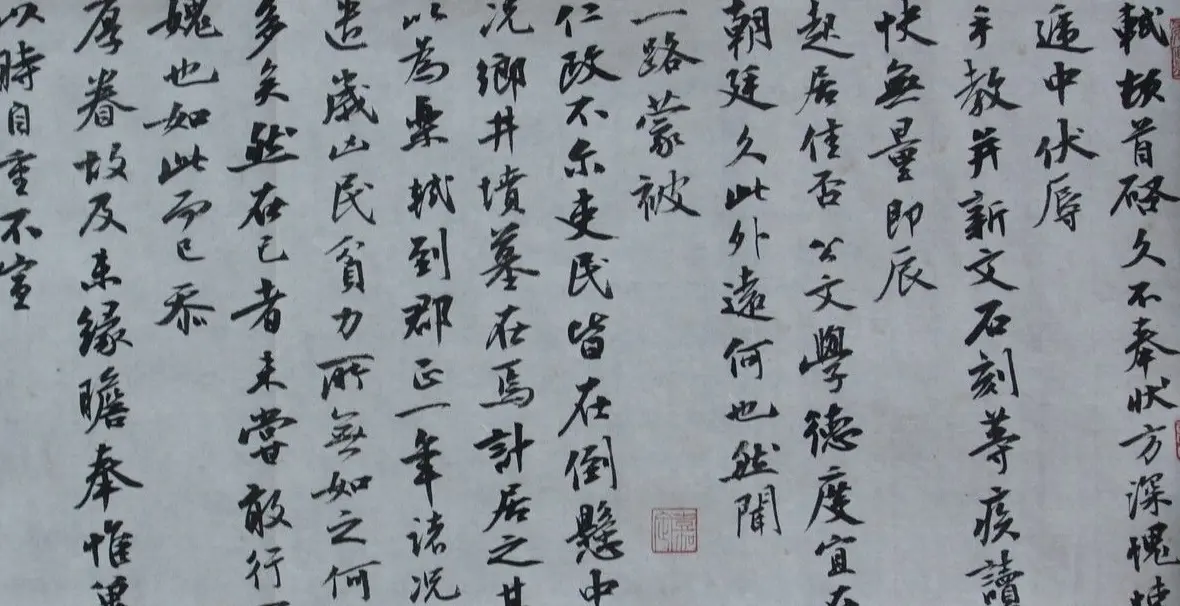 軾頓首啓久不奉狀方深愧
遞中伏辱
手教并新文石刻等疾讀
快無量即辰
起居佳否公文學德度宜在
朝廷久此外遠何也然聞
一路蒙被
仁政不尔吏民皆在倒懸中
况鄉井墳墓在焉計居之甚
以為樂軾到郡正一年諸况
遣歲凶民貧力所無如之何
多矣然在己者未嘗敢行
愧也如此而已忝
厚眷故及未緣瞻奉惟萬
以時自重不宣